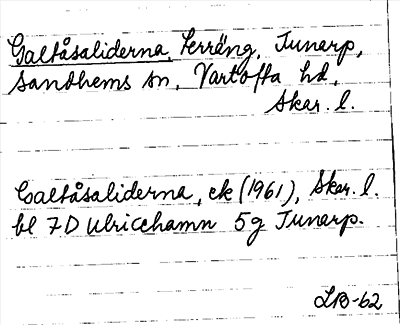 Galtåsaliderna, Terräng, Tunarp,
Sandhems sn, Vartofta hd,
Skar. l.
Galtåsaliderna, ek (1961), Skar. l.
bl 7D Ulricehamn 5g Tunarp.
LB-62